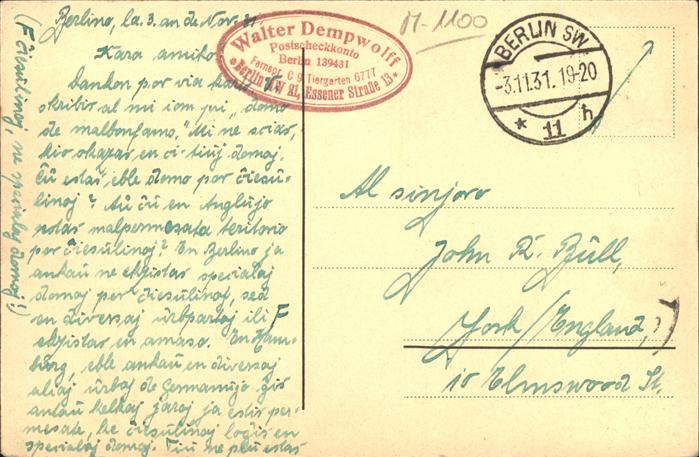 Berlino, la 3. an de Nov. 31
Kara amiko
Dankon por via karto
skribis al mi iom pri „domo
de malbonfamo." Mi ne scias,
kio okazas en ĉi-tiuj domoj.
Ĉu estas eble domo por ĉiesu-
linoj? Aŭ ĉu en Anglujo
estas malpermesata teritorio
por ĉiesulinoj? En Berlino ja
ankaŭ ne ekzistas specialaj
domoj por ĉiesulinoj, sed
en diversaj urbpartoj ili F
ekzistas en amaso. En Ham-
burg, eble ankaŭ en diversaj
aliaj urboj de Germanujo. Ĝis
antaŭ kelkaj jaroj ja estis per-
mesate, ke ĉiesulinoj loĝis en
specialaj domoj. Tiu ne plu estas
(F ĉiesulinoj, ne specialaj domoj!)
Walter Dempwolff
Postscheckkonto
Berlin 139431
Fernspr. C 9 Tiergarten 6777
Berlin NW 21, Essener Straße 13
M-1100
BERLIN SW
-3.11.31. 19-20
* 11 h
Al sinjoro
John K. Bull,
York/England,
10 Elmswood St.